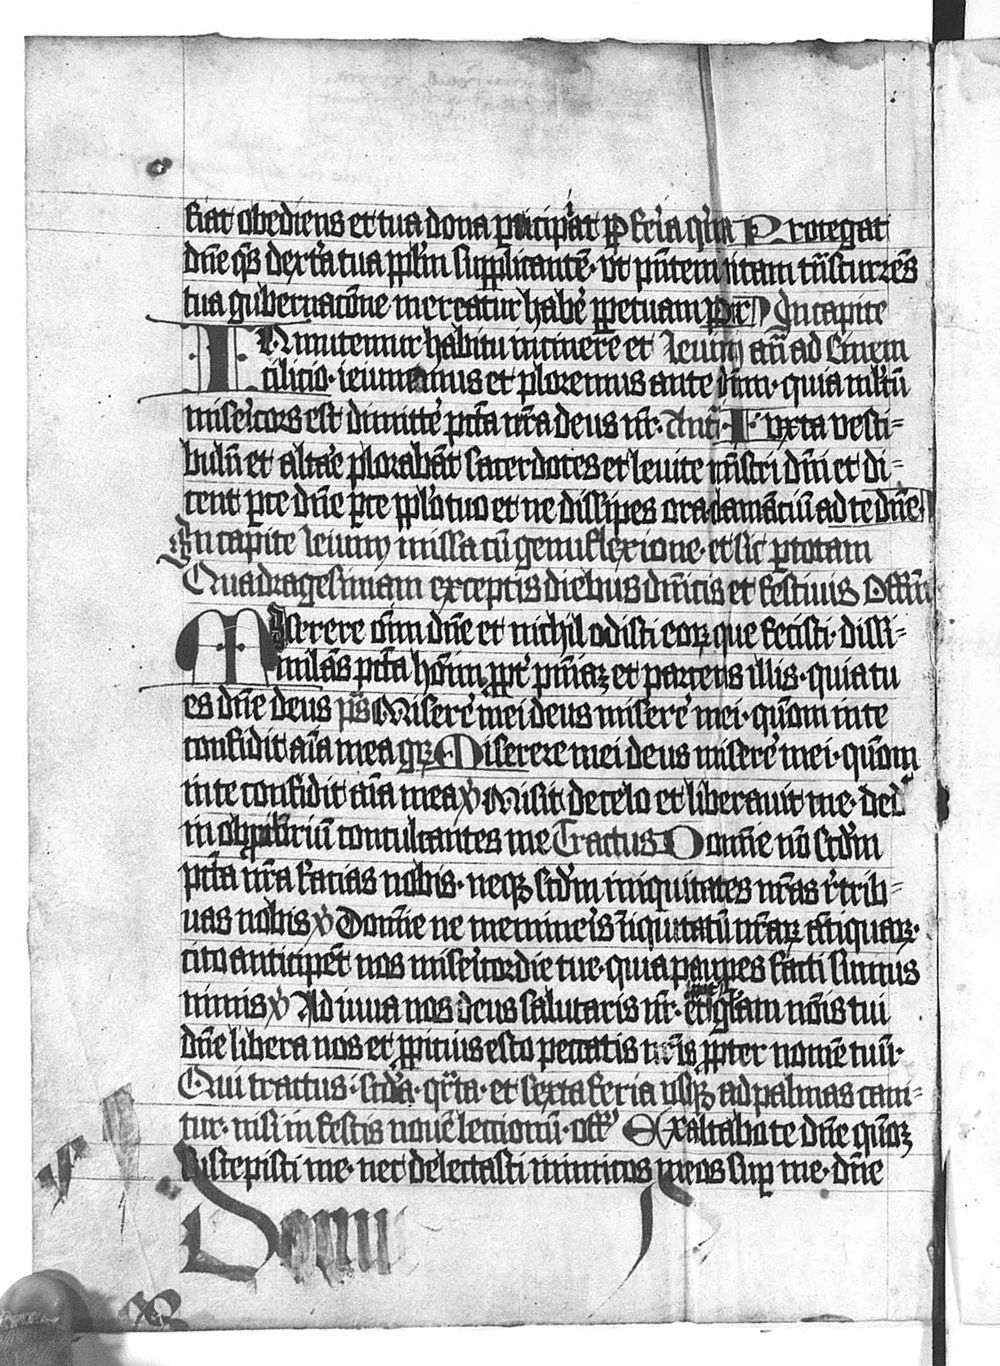 fiat obediens et tua dona pͥcipiat ꝑ feria qͥnta Protegat
dn̄e q̄s dextͣa tua pplm̄ supplicantē· vt pn̄tem uitam tn̄scurrens
tua gubernacōne mereatur habe᷑ ꝑpetuam ꝑ In capite
INmutemur habitu in cinere et Ieiunij an̄ ad Cinerem
cilicio· ieiunemus et ploremus ante dn̄m· quia mltū
misericors est dimitte᷑ pctā nr̄a deus nr̄· Anā Iuxta vesti-
bulū et altare plorabāt sacerdotes et leuite mīstri dn̄i et di-
cent ꝑce dn̄e ꝑce pplo tuo et ne dissipes ora clamāciū ad te dn̄e
In capite Ieiunij missa cū genuflexione· et sic ꝑ totam
Quadragesimam exceptis diebus dn̄icis et festiuis Offm̄
Miserere oīm dn̄e et nichil odisti eorꝝ que fecisti· dissi-
milās pctā hoīm ꝓpt᷑ pn̄iaꝫ et parcens illis· quia tu
es dn̄e deus ps̄ Misere᷑ mei deus misere᷑ mei· qūom in te
confidit aīa mea gꝝ Miserere mei deus misere᷑ mei· qūom
in te confidit aīa mea ℣ Misit de celo et liberauit me· ded᷑
in obprobriū conculcantes me Tractus Domīe nō scdm̄
pctā nr̄a facias nobis· neqꝫ scdm̄ iniquitates nr̄as r̄trib-
uas nobis ℣ Domīe ne memineris īiquitatū nr̄aꝝ ātiquaꝝ·
cito anticipēt nos misericordie tue· quia pauꝑes facti sumus
nimis ℣ Adiuua nos deus salutaris nr̄· et glīam noīs tui
dn̄e libera nos et ꝓpicius esto peccatis nr̄is ꝓpter nomē tuū·
Qui tractus· scdͣa· qrͣta· et sexta feria vsqꝫ ad palmas cani-
tur· nisi in festis nouē lectionū· off᷑ Exaltabo te dn̄e qūoꝫ
suscepisti me· nec delectasti inimicos meos suꝑ me· dn̄e